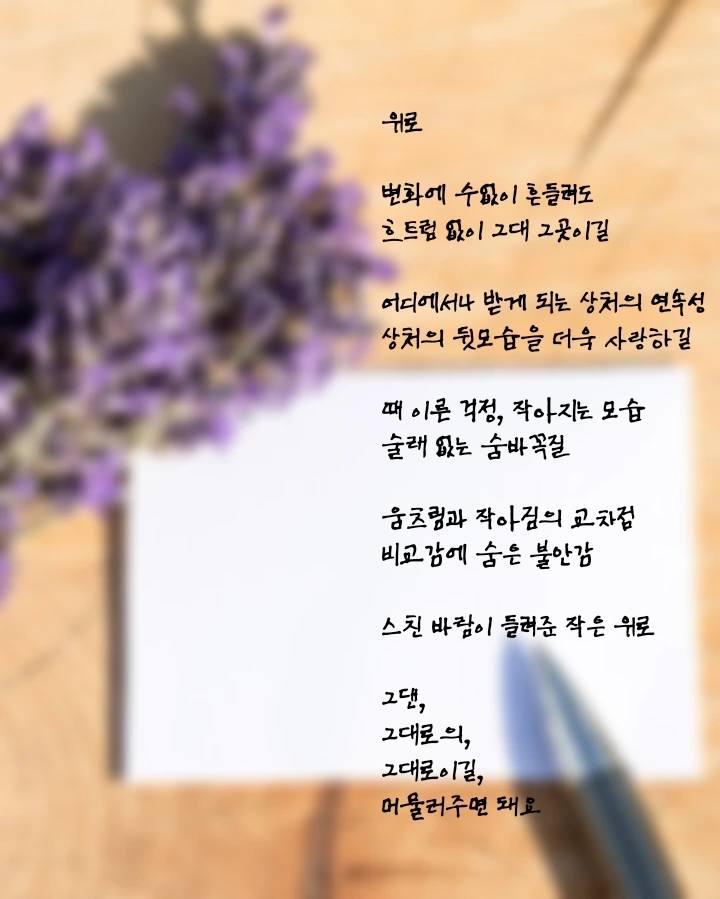 위로
변화에 수없이 흔들려도
흐트럼 없이 그대 그곳이길
어디에서나 받게 되는 상처의 연속성
상처의 뒷모습을 더욱 사랑하길
때 이른 걱정, 작아지는 모습
술래 없는 숨바꼭질
움츠림과 작아짐의 교차점
비교감에 숨은 불안감
스친 바람이 들려준 작은 위로
그댄,
그대로의,
그대로이길,
머물러주면 돼요